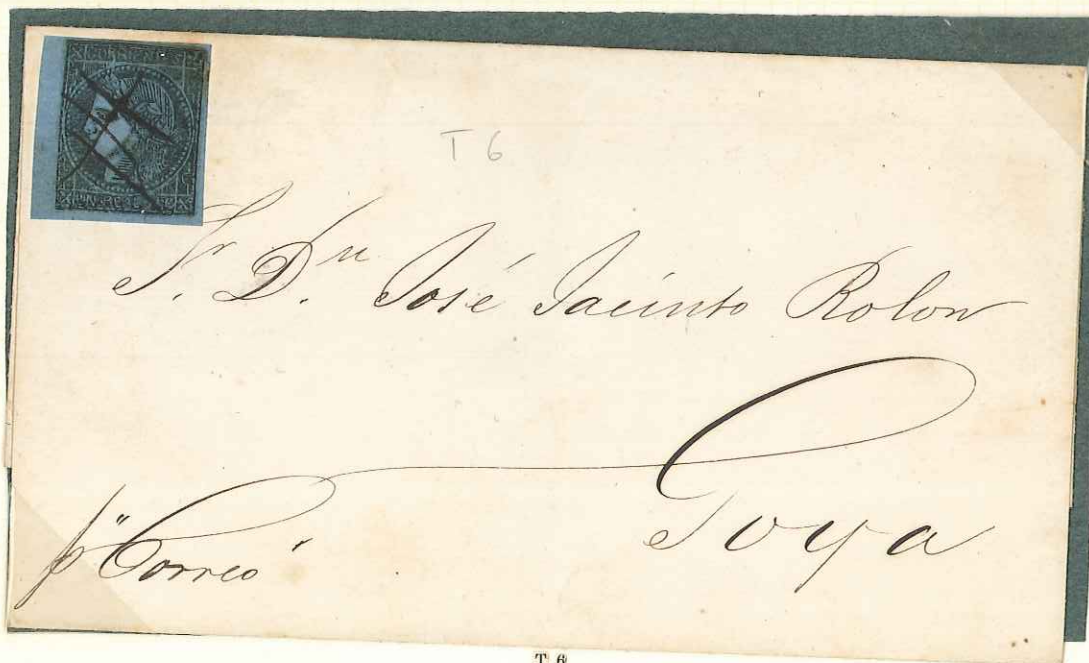 CORRIENTES
UN REAL M.C.
T 6
Sr. Dn. José Jacinto Rolon
Goya
pr Correo
T 6